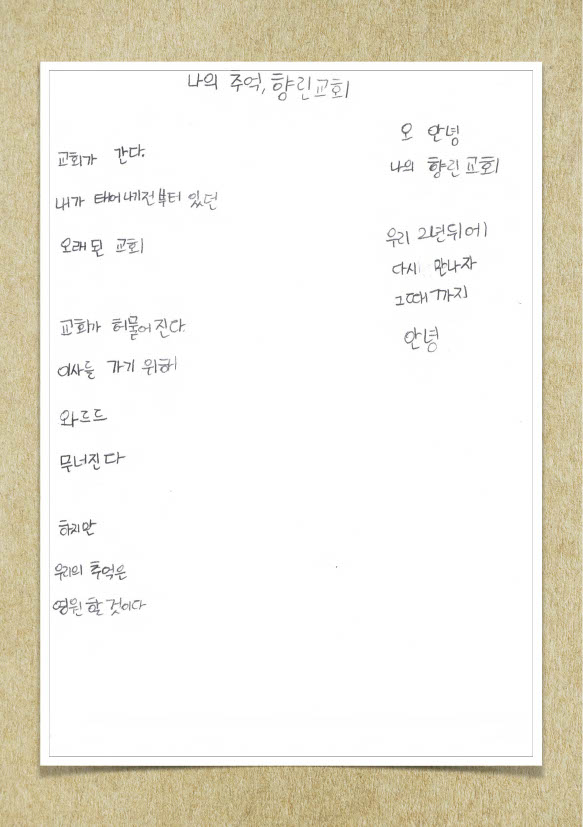 나의 추억, 향린교회
교회가 간다.
내가 태어나기전부터 있던
오래된 교회
교회가 허물어진다.
이사를 가기 위해
와르르
무너진다
하지만
우리의 추억은
영원할 것이다
오 안녕
나의 향린교회
우리 2년뒤에
다시 만나자
그때까지
안녕